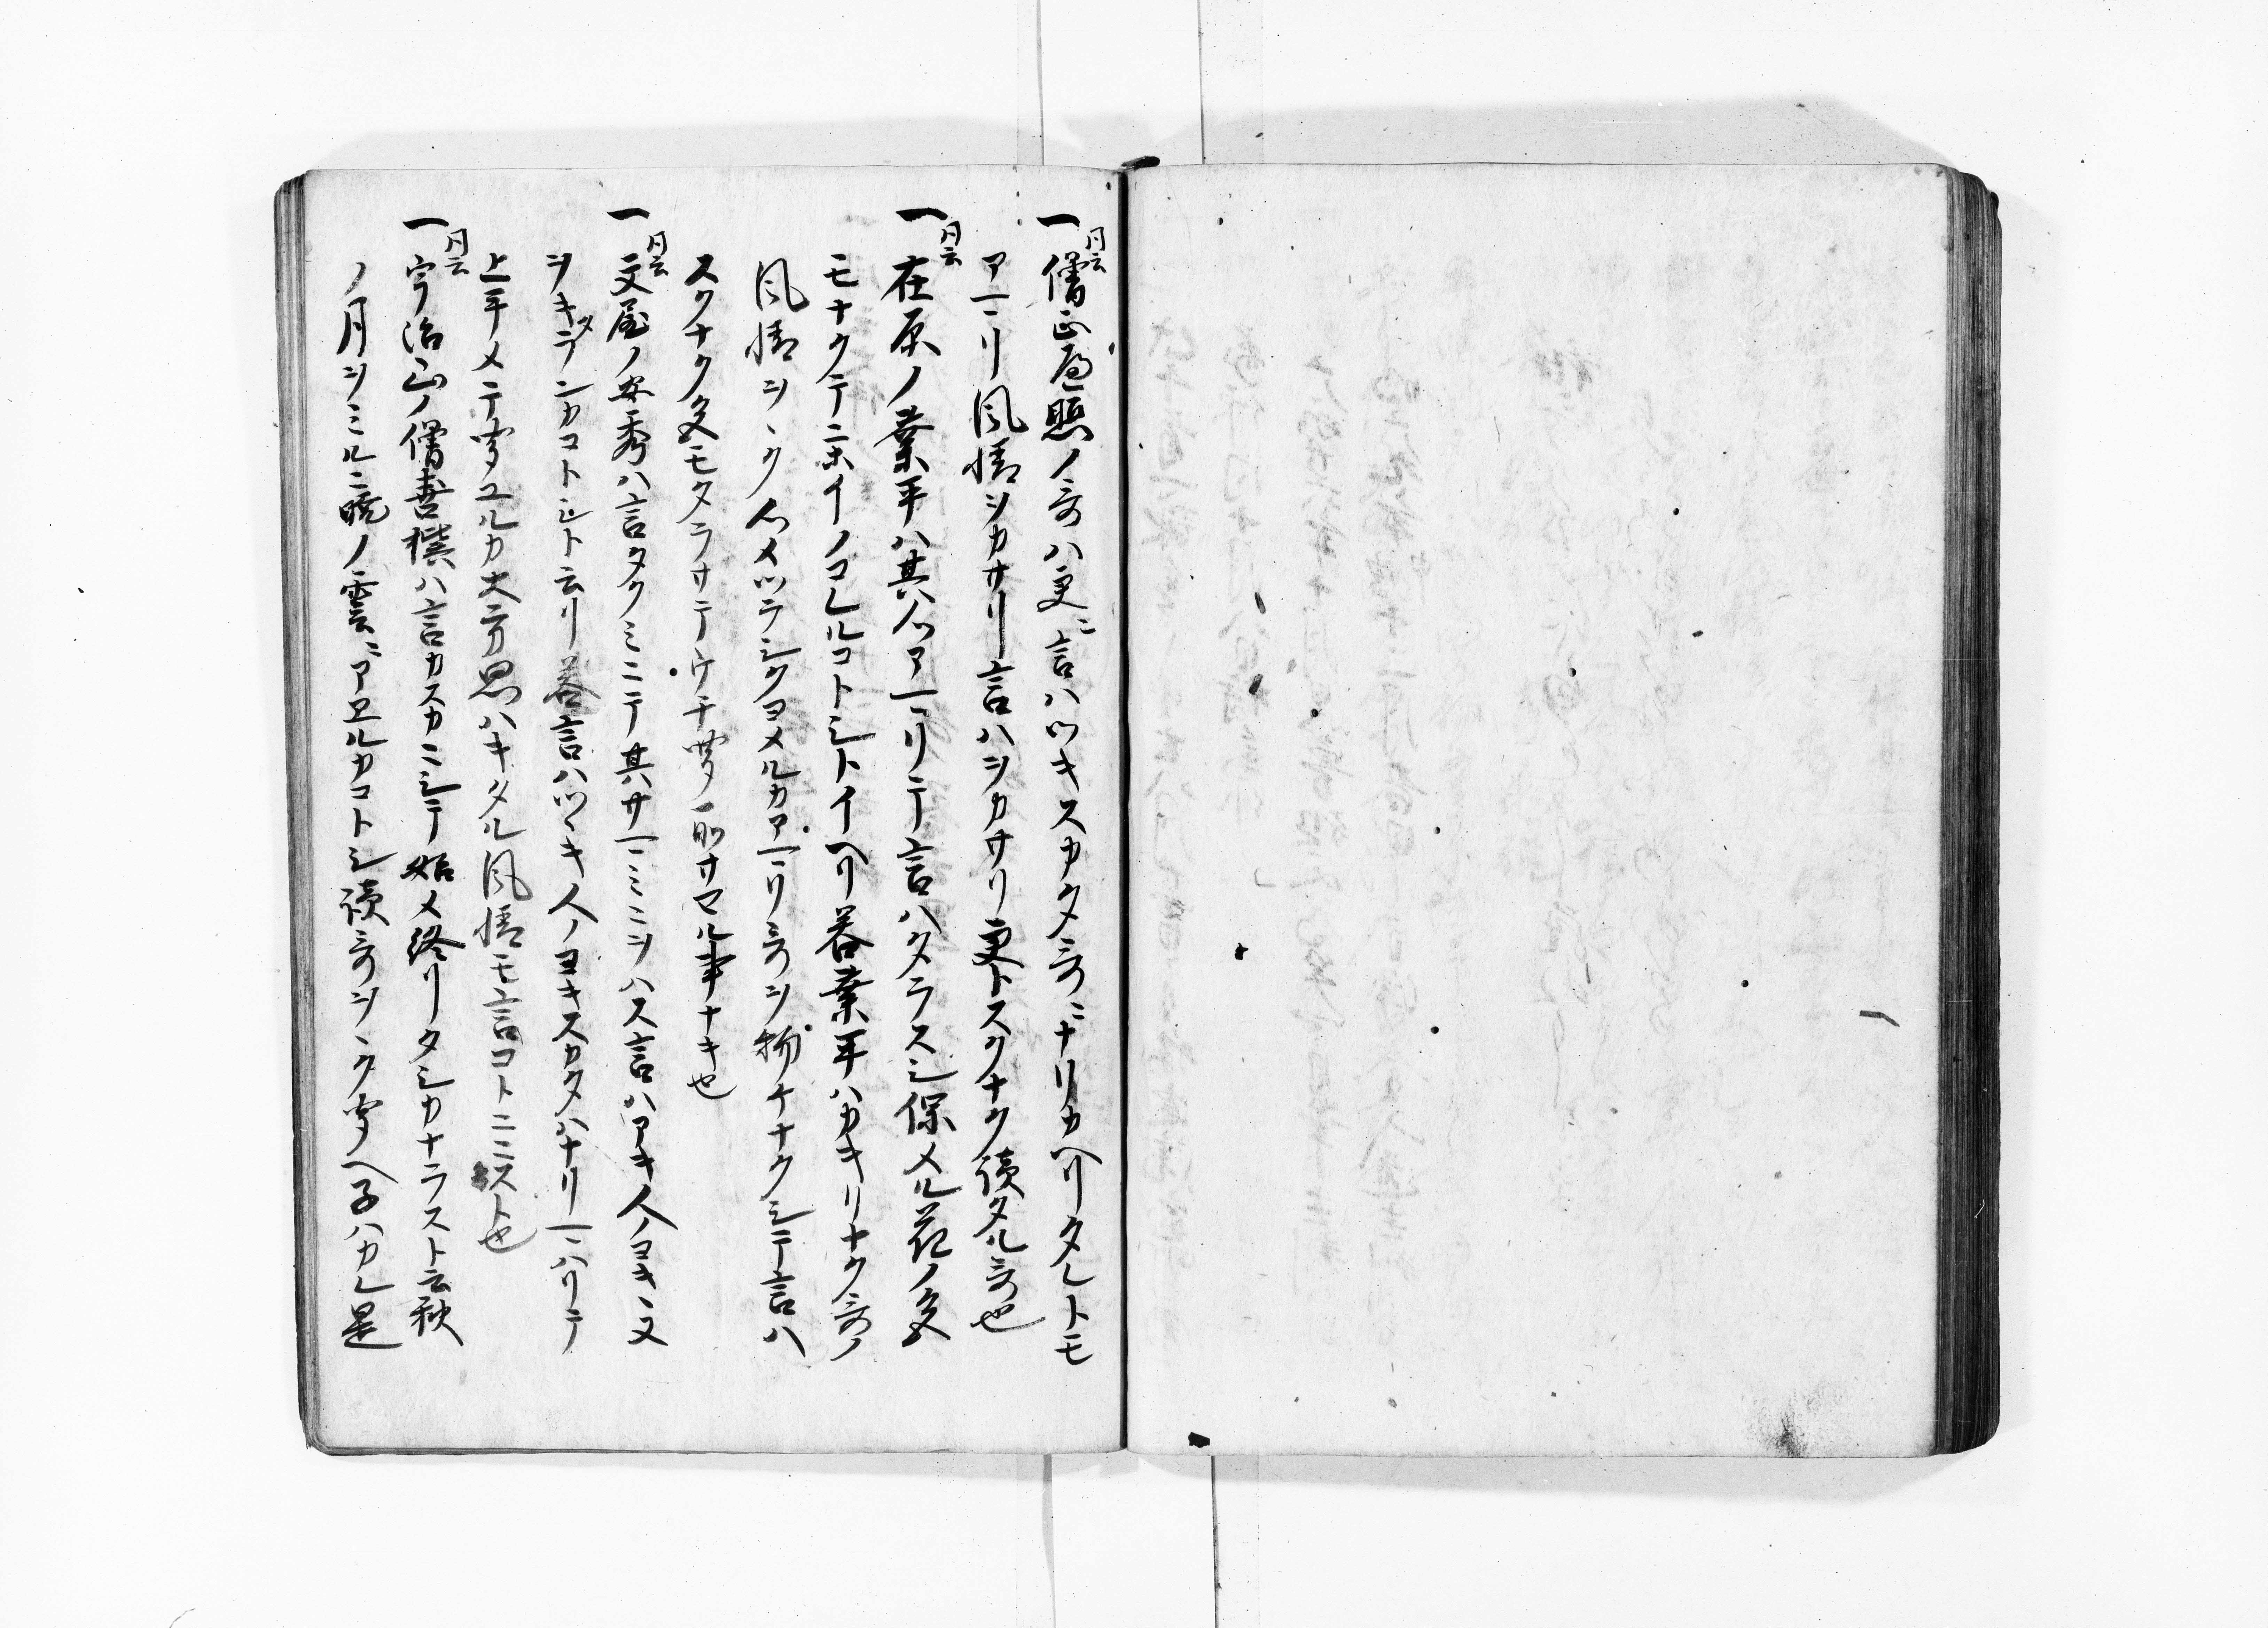 一 問云僧正遍照ノ哥ハ更ニ言ハツキスカタメ哥ニナリカヘリタレトモ
アマリ風情ヲカサリ言ハヲカサリ更トスクナク読タル哥也
一 問云在原ノ業平ハ其心アマリテ言ハタラス之保メル花ノ色
モナクテニホイノコレルコトシトイヘリ答業平ハカキリナク哥ノ
風情ヲヽク心メツラシクヨメルカアマリ哥ヲ物ケナクシテ言ハ
スクナク多モタラサテウチ聞所サマル事ナキ也
一 問云文屋ノ安秀ハ言タクミニテ其サマミニヲハス言ハアキ人ノヨキヽヌ
ヲキタランカコトシト云リ答言ハツヽキ人ノヨキスカタハナリマハリテ
上手メテ聞ユルカ大方思ハキタル風情モ言コトニニストセ
一 問云宇治山ノ僧喜撰ハ言カスカニシテ始メ終リタシカナラスト云秋
ノ月ヲミルニ暁ノ雲ニアエルカコトシ読哥ヲヽク聞ヘ子ハカレ是